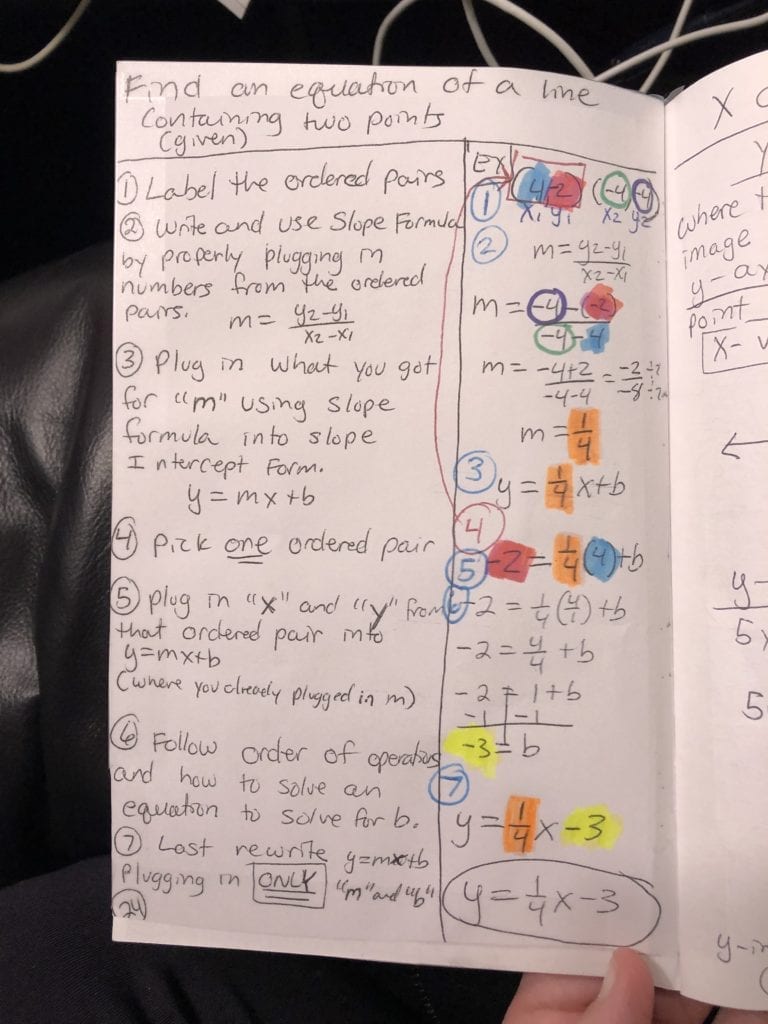 Find an equation of a line
Containing two points
(given)
① Label the ordered pairs
② Write and use Slope Formula
by properly plugging in
numbers from the ordered
pairs. m = y2-y1 / x2-x1
③ Plug in what you got
for "m" using slope
formula into slope
Intercept Form.
y = mx + b
④ Pick one ordered pair
⑤ plug in "x" and "y" from
that ordered pair into
y=mx+b
(where you already plugged in m)
⑥ Follow order of operations
and how to solve an
equation to solve for b.
⑦ Last rewrite y=mx+b
Plugging in ONLY "m" and "b"
24
EX
① (4,-2) (-4,-4)
x1 y1 x2 y2
② m = y2-y1 / x2-x1
m = -4-(-2) / -4-4
m = -4+2 / -4-4 = -2÷2 / -8÷2
m = 1/4
③ y = 1/4 x + b
④
⑤ -2 = 1/4 (4) + b
⑥ -2 = 1/4 (4/1) + b
-2 = 4/4 + b
-2 = 1 + b
-1 -1
-3 = b
⑦
y = 1/4 x - 3
y = 1/4 x - 3
X
y
where
image
y - ax
point
X- v
y-
5x
5
y-in